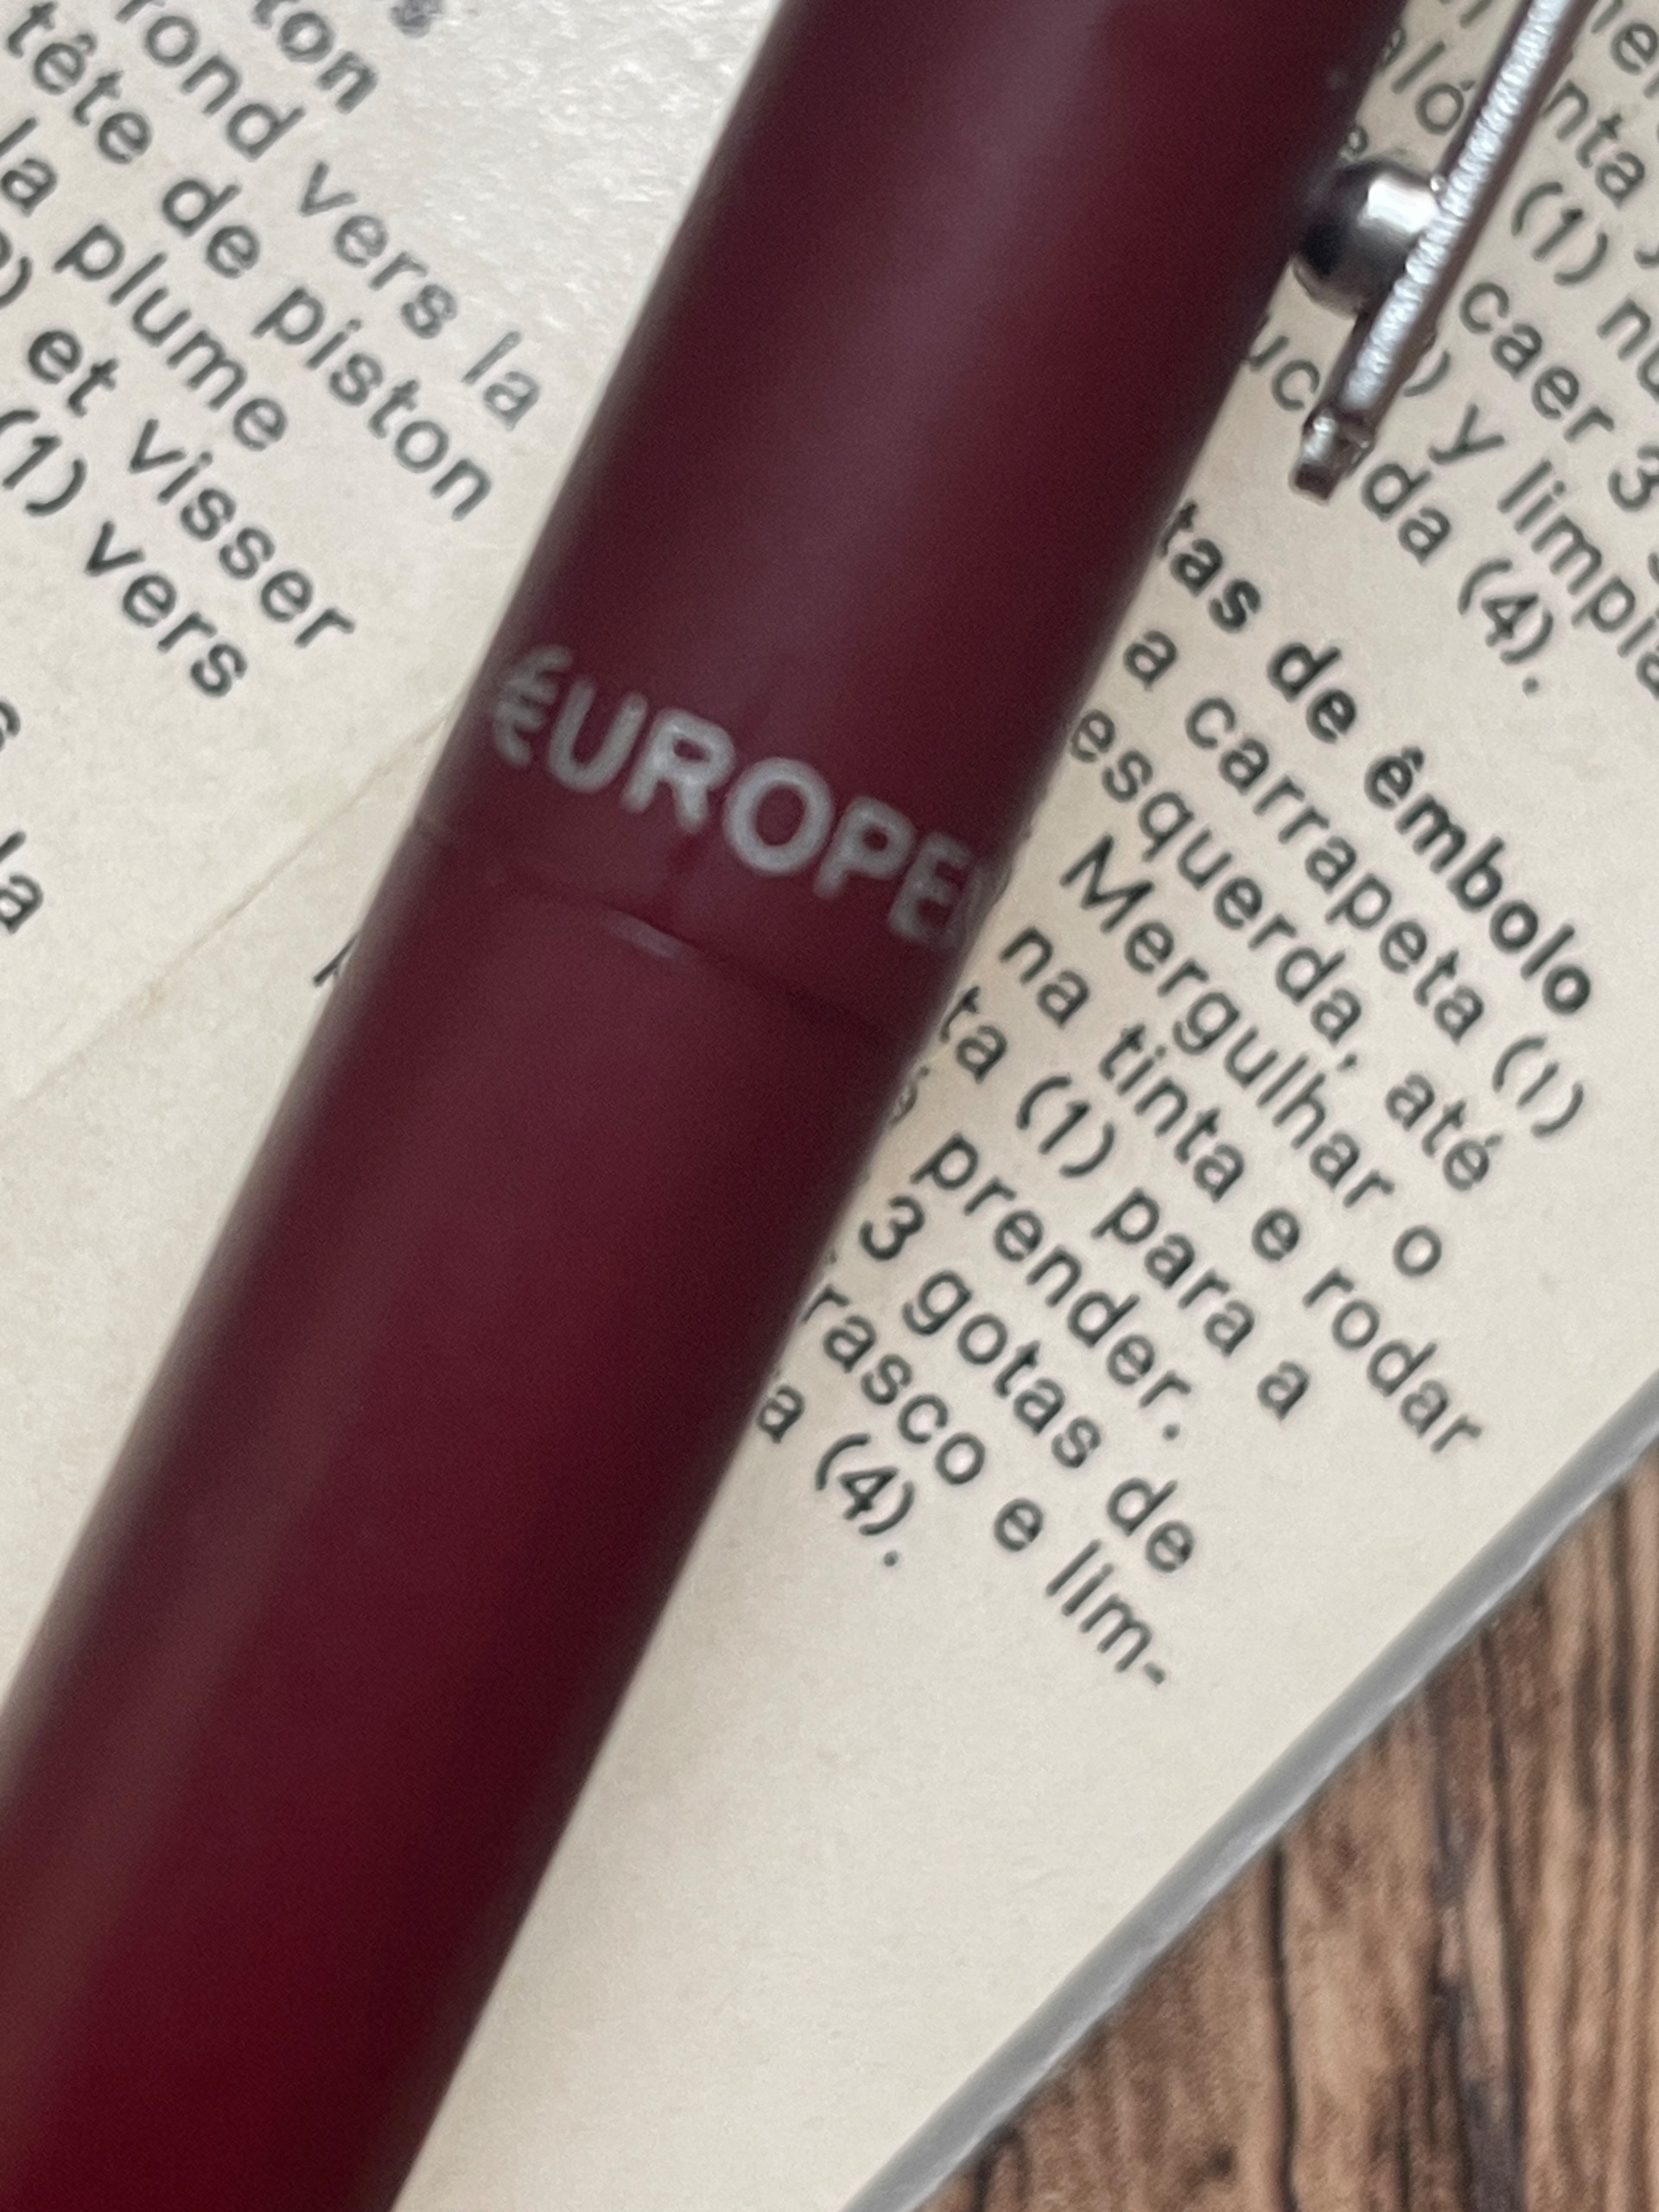 rond vers la
tête de piston
la plume
et visser
(1) vers
la
€UROPE
caer 3
y limpia
da (4).
de êmbolo
a carrapeta (1)
esquerda, até
Mergulhar o
na tinta e rodar
(1) para a
prender.
3 gotas de
e lim-
(4).